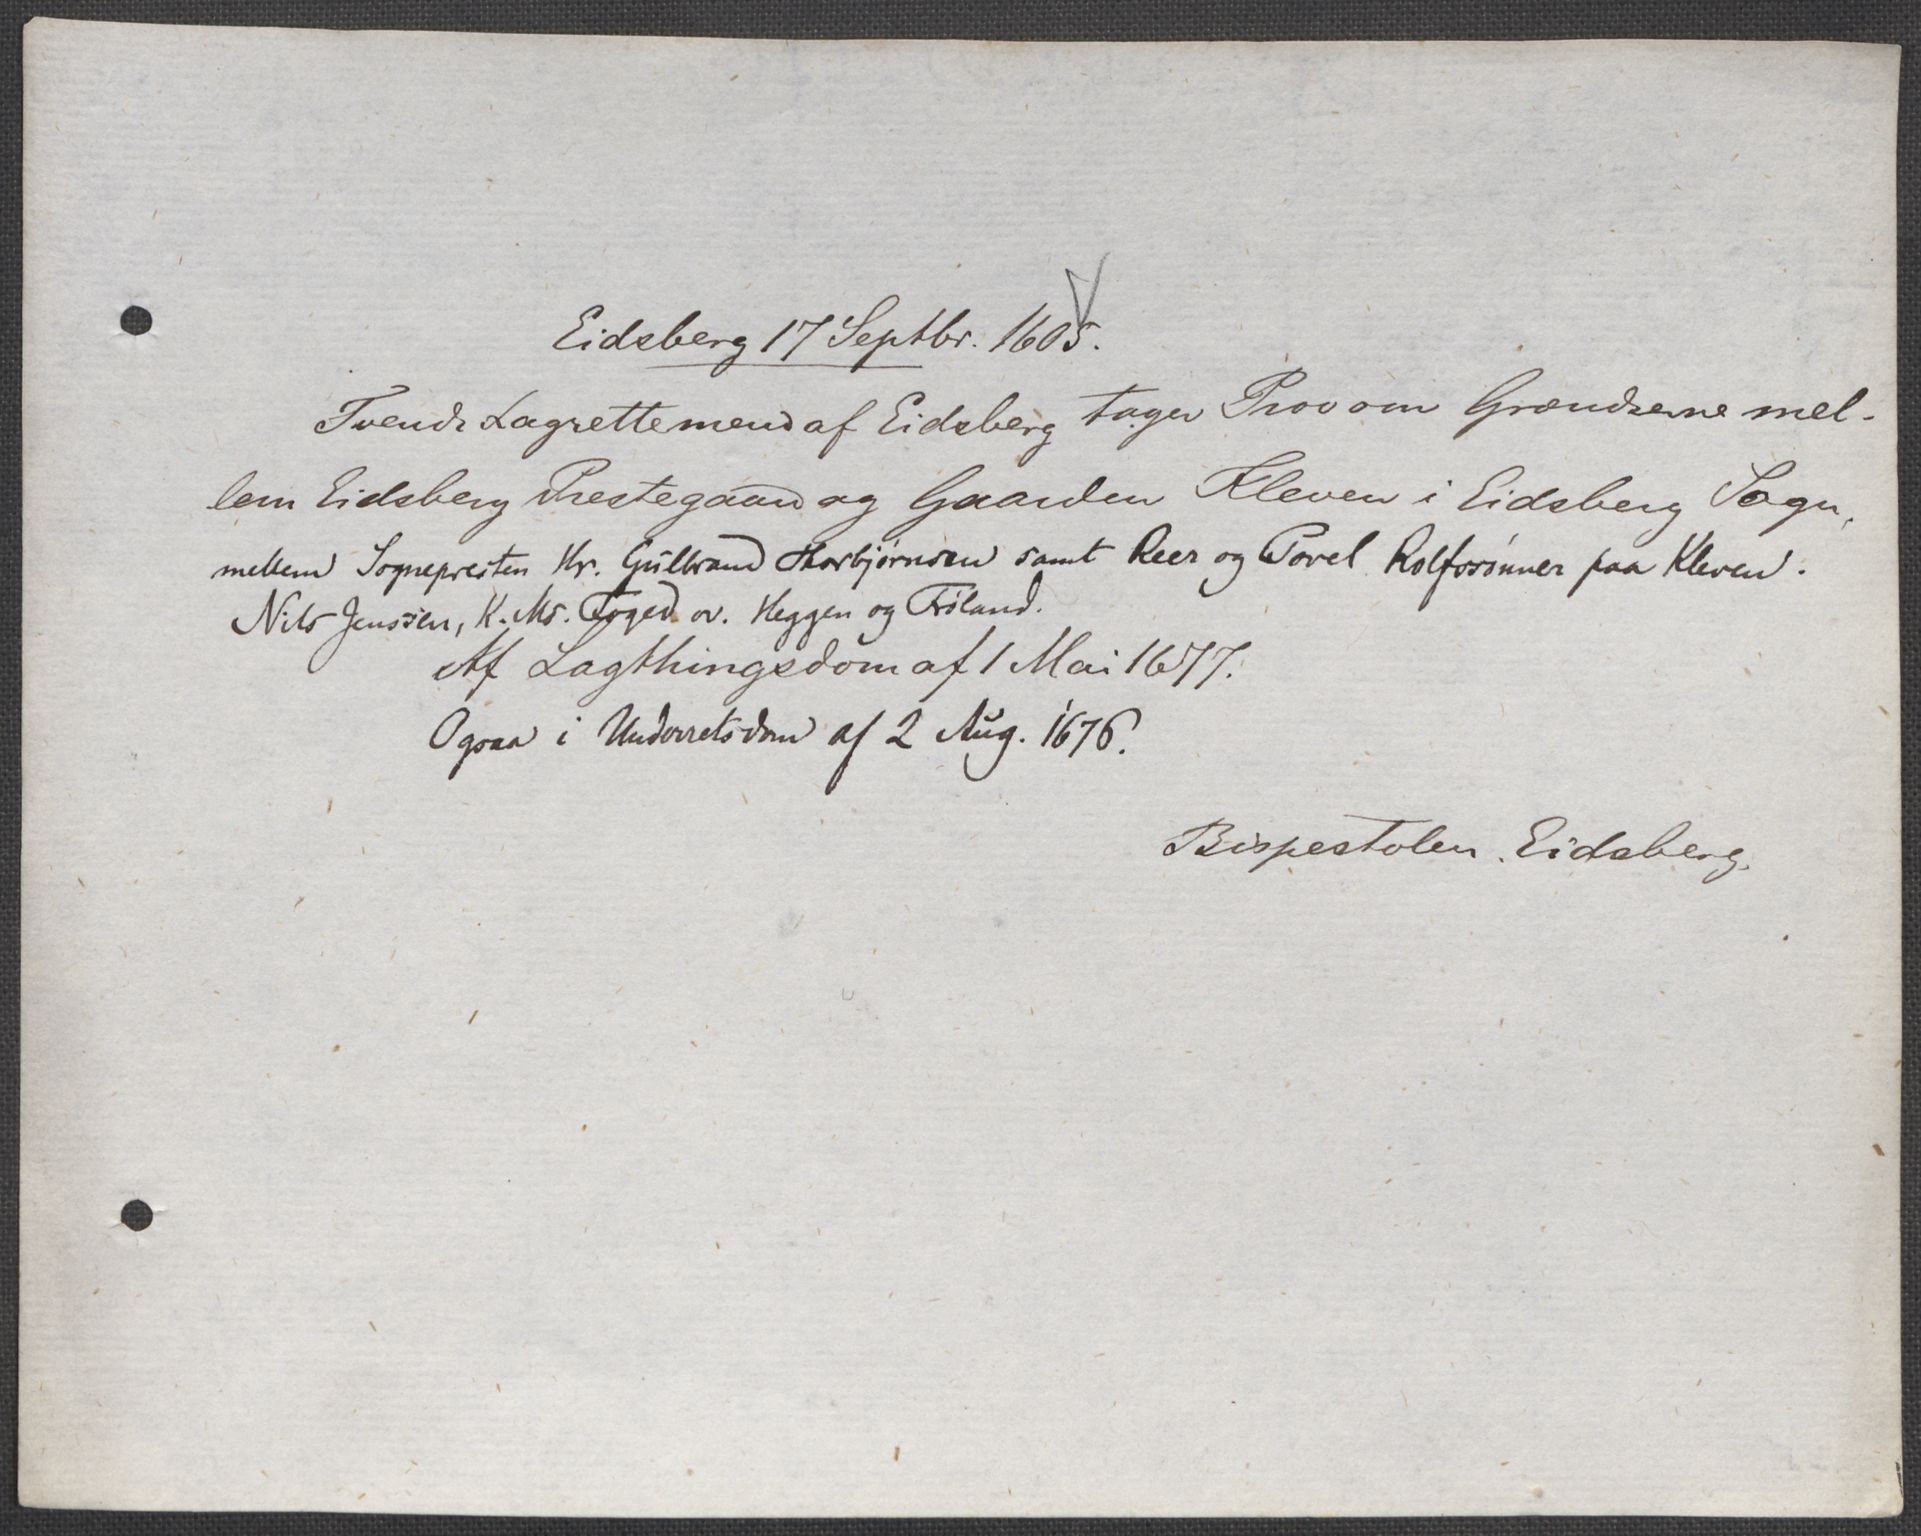 Eidsberg 17 Septbr. 1605.
Tvende Lagrettemend af Eidsberg tager Prov om Grændserne mel-
lem Eidsberg Prestegaard og Gaarden Kleven i Eidsberg Sogn,
mellem Sognepresten Hr. Gulbrand Thorbjørnsen samt Reer og Povel Rolfssønner paa Kleven.
Nils Jenssøn, K. Ms. Foged ov. Heggen og Frøland.
Af Lagthingsdom af 1 Mai 1677.
Ogsaa i Underretsdom af 2 Aug. 1676.
Bispestolen. Eidsberg.